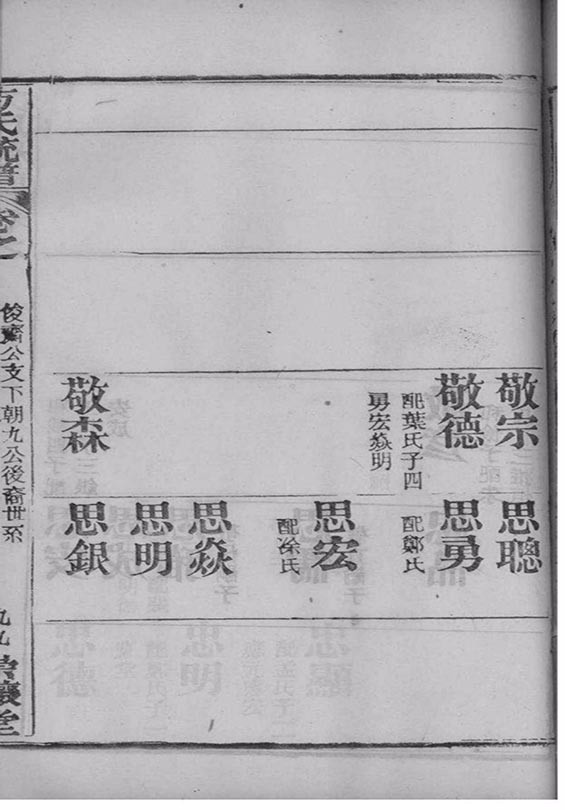 敬宗
思聰
敬德
配葉氏子四
勇宏焱明
思勇
配鄭氏
思宏
配涂氏
思焱
思明
敬森
思銀
氏統譜
卷之
俊齋公支下朝九公後裔世系
九九